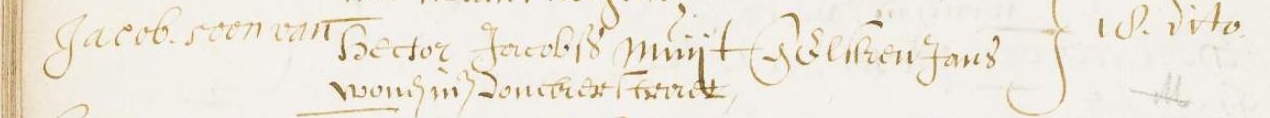 Jacob. soon van Hector Jacobss Muijt & Elsken Jans 18. dito.
wonen in Donckerstraet,